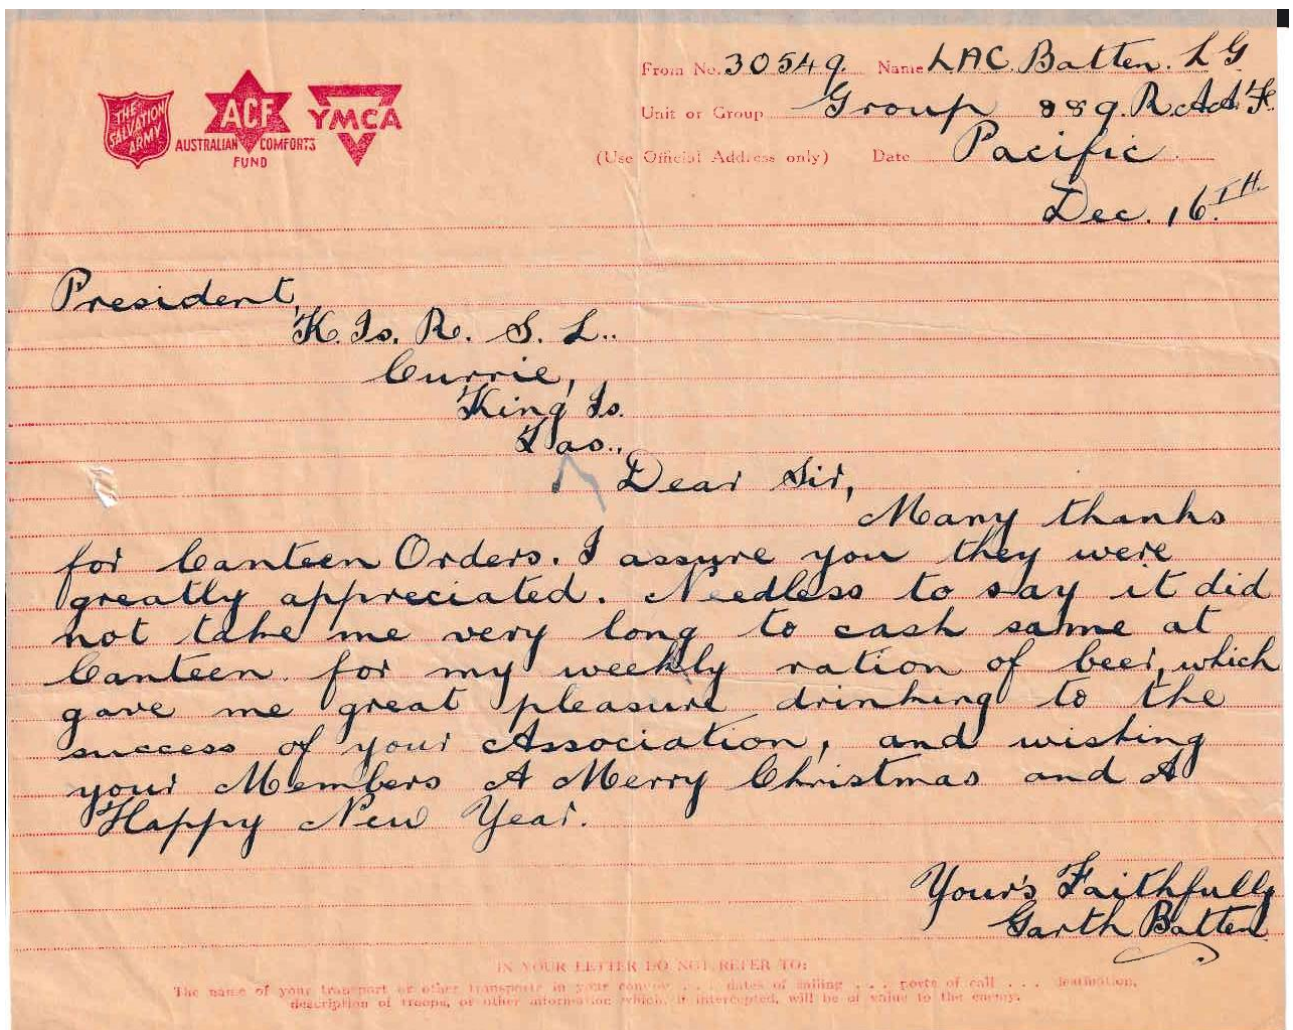 THE SALVATION ARMY
ACF
AUSTRALIAN COMFORTS
FUND
YMCA
From No. 30549. Name LAC. Batten. L G
Unit or Group Group 889. R.A.A.F.
(Use Official Address only) Date Pacific.
Dec. 16.TH.
President,
K. Is. R. S. L..
Currie,
King Is.
Tas..
Dear Sir,
Many thanks
for Canteen Orders. I assure you they were
greatly appreciated. Needless to say it did
not take me very long to cash same at
Canteen for my weekly ration of beer, which
gave me great pleasure drinking to the
success of your Association, and wishing
your Members A Merry Christmas and A
Happy New Year.
Your's Faithfully
Garth Batten
IN YOUR LETTER DO NOT REFER TO:
The name of your transport or other transports in your convoy . . . dates of sailing . . . ports of call . . . destination,
description of troops, or other information which, if intercepted, will be of value to the enemy.